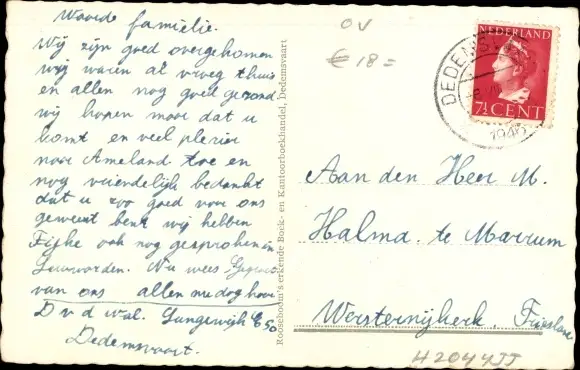 Waarde familie.
Wij zijn goed overgekomen
wij waren al vroeg thuis
en allen nog goed gezond
wij hopen maar dat u
komt en veel plezier
naar Ameland toe en
nog vriendelijk bedankt
dat u zoo goed voor ons
geweest bent wij hebben
Fijke ook nog gesproken in
Leuwarden. Nu wees Gegroet
van ons allen
D v d Wal. Langewijk E 50
Dedemsvaart.
Rooseboom's erkende Boek- en Kantoorboekhandel, Dedemsvaart
OV
€ 18=
NEDERLAND
7½ CENT
DEDEMSVAART
1946
Aan den Heer M.
Halma. te Marrum
Westernijkerk. Friesland
H2044JJ